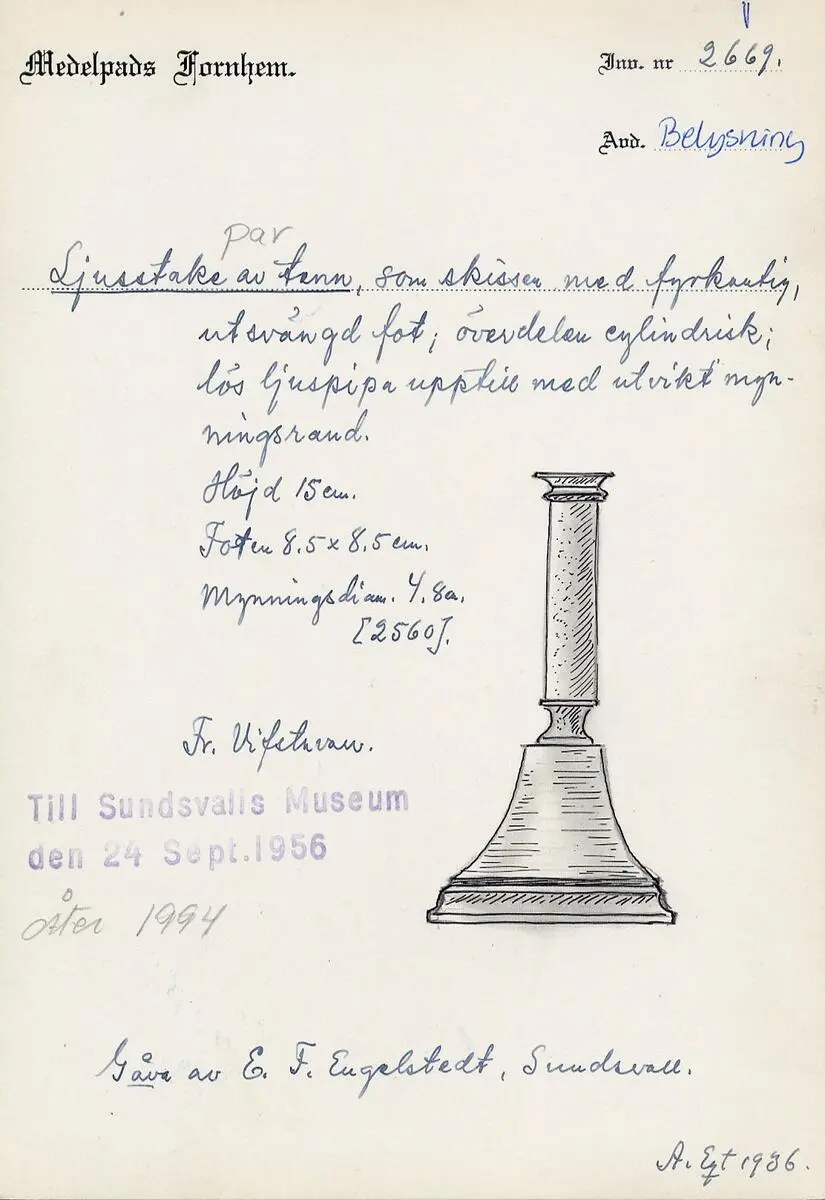 Medelpads Fornhem.
Inv. nr 2669.
Avd. Belysning
par
Ljusstake av tenn, som skissen med fyrkantig,
utsvängd fot; överdelen cylindrisk;
lös ljuspipa upptill med utvikt myn-
ningsrand.
Höjd 15 cm.
Foten 8.5 x 8.5 cm.
Mynningsdiam. 4.8 cm.
[2560].
Fr. Vifstavarv.
Till Sundsvalls Museum
den 24 Sept. 1956
åter 1994
Gåva av E. F. Engelstedt, Sundsvall.
A. Eqt 1936.